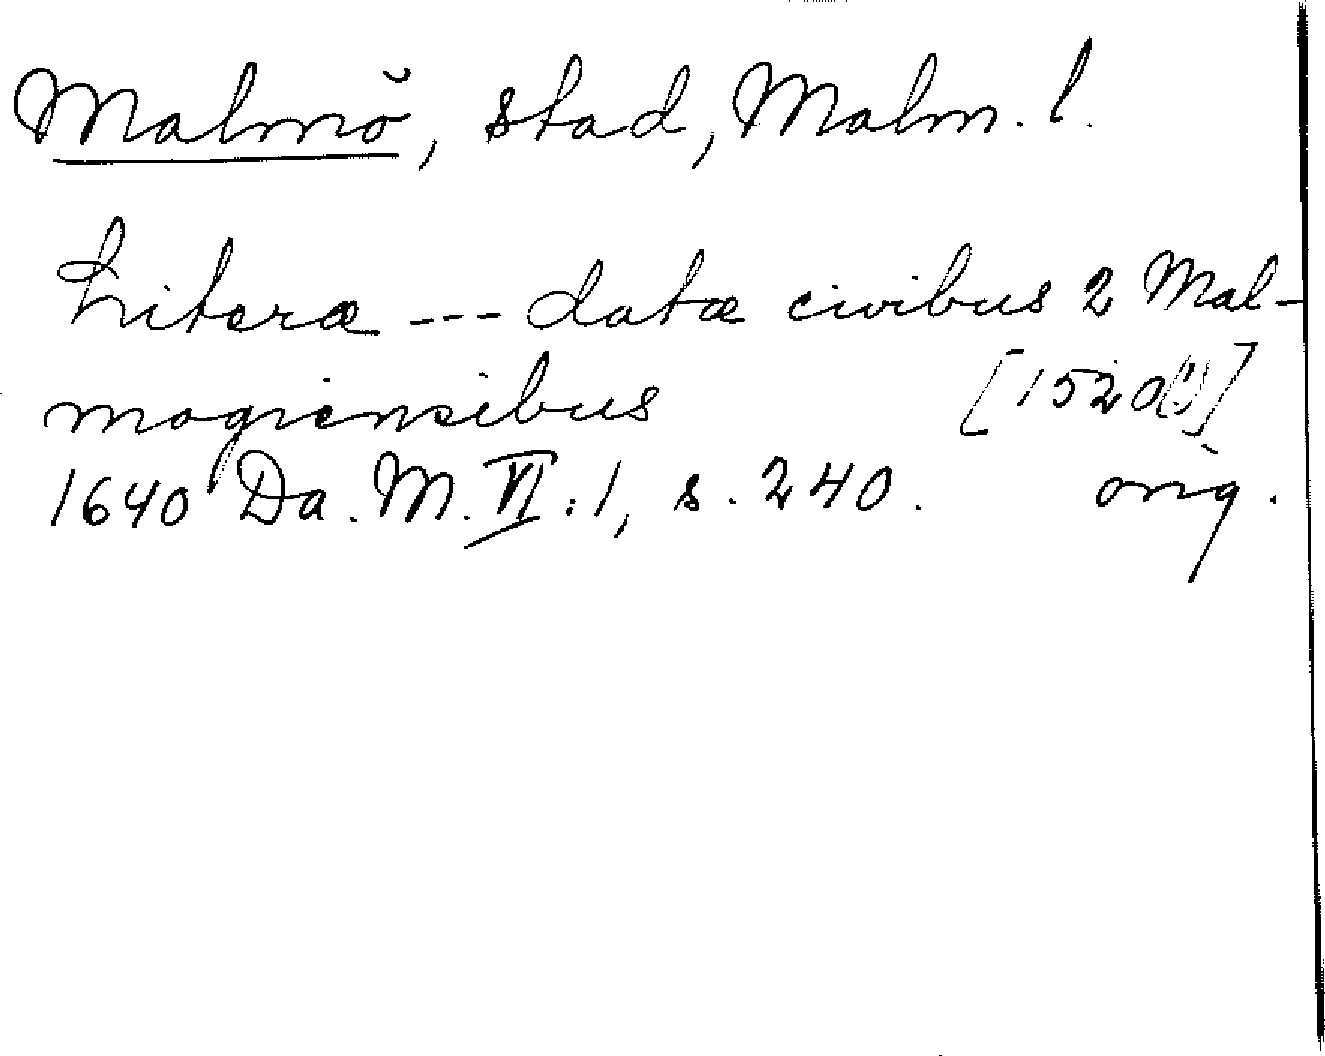 Malmö, stad, Malm. l.
Literæ --- datæ civibus 2 Mal-
mogiensibus [1520(!)]
1640 Da. M. VI:1, s. 240. orig.